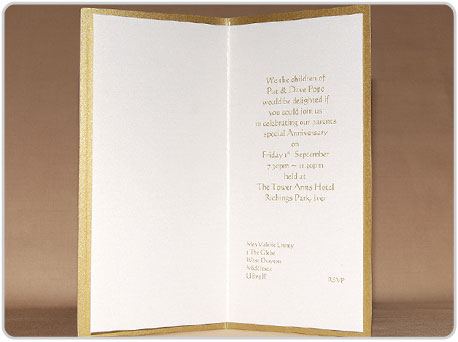 We the children of
Pat & Dave Pope
would be delighted if
you could join us
in celebrating our parents
special Anniversary
on
Friday 1st September
7.30pm ~ 11.30pm
held at
The Tower Arms Hotel
Richings Park, Iver
Mrs Valerie
1 The Glebe
West Drayton
Middlesex
RSVP